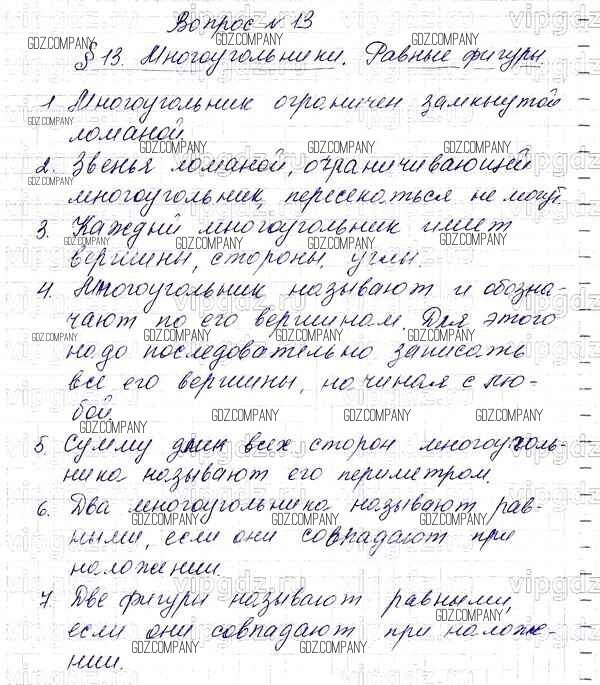 Вопрос № 13
§ 13. Многоугольники. Равные фигуры
1. Многоугольник ограничен замкнутой
ломаной.
2. Звенья ломаной, ограничивающей
многоугольник, пересекаться не могут.
3. Каждый многоугольник имеет
вершины, стороны, углы.
4. Многоугольник называют и обозна-
чают по его вершинам. Для этого
надо последовательно записать
все его вершины, начиная с лю-
бой.
5. Сумму длин всех сторон многоуголь-
ника называют его периметром.
6. Два многоугольника называют рав-
ными, если они совпадают при
наложении.
7. Две фигуры называют равными,
если они совпадают при наложе-
нии.